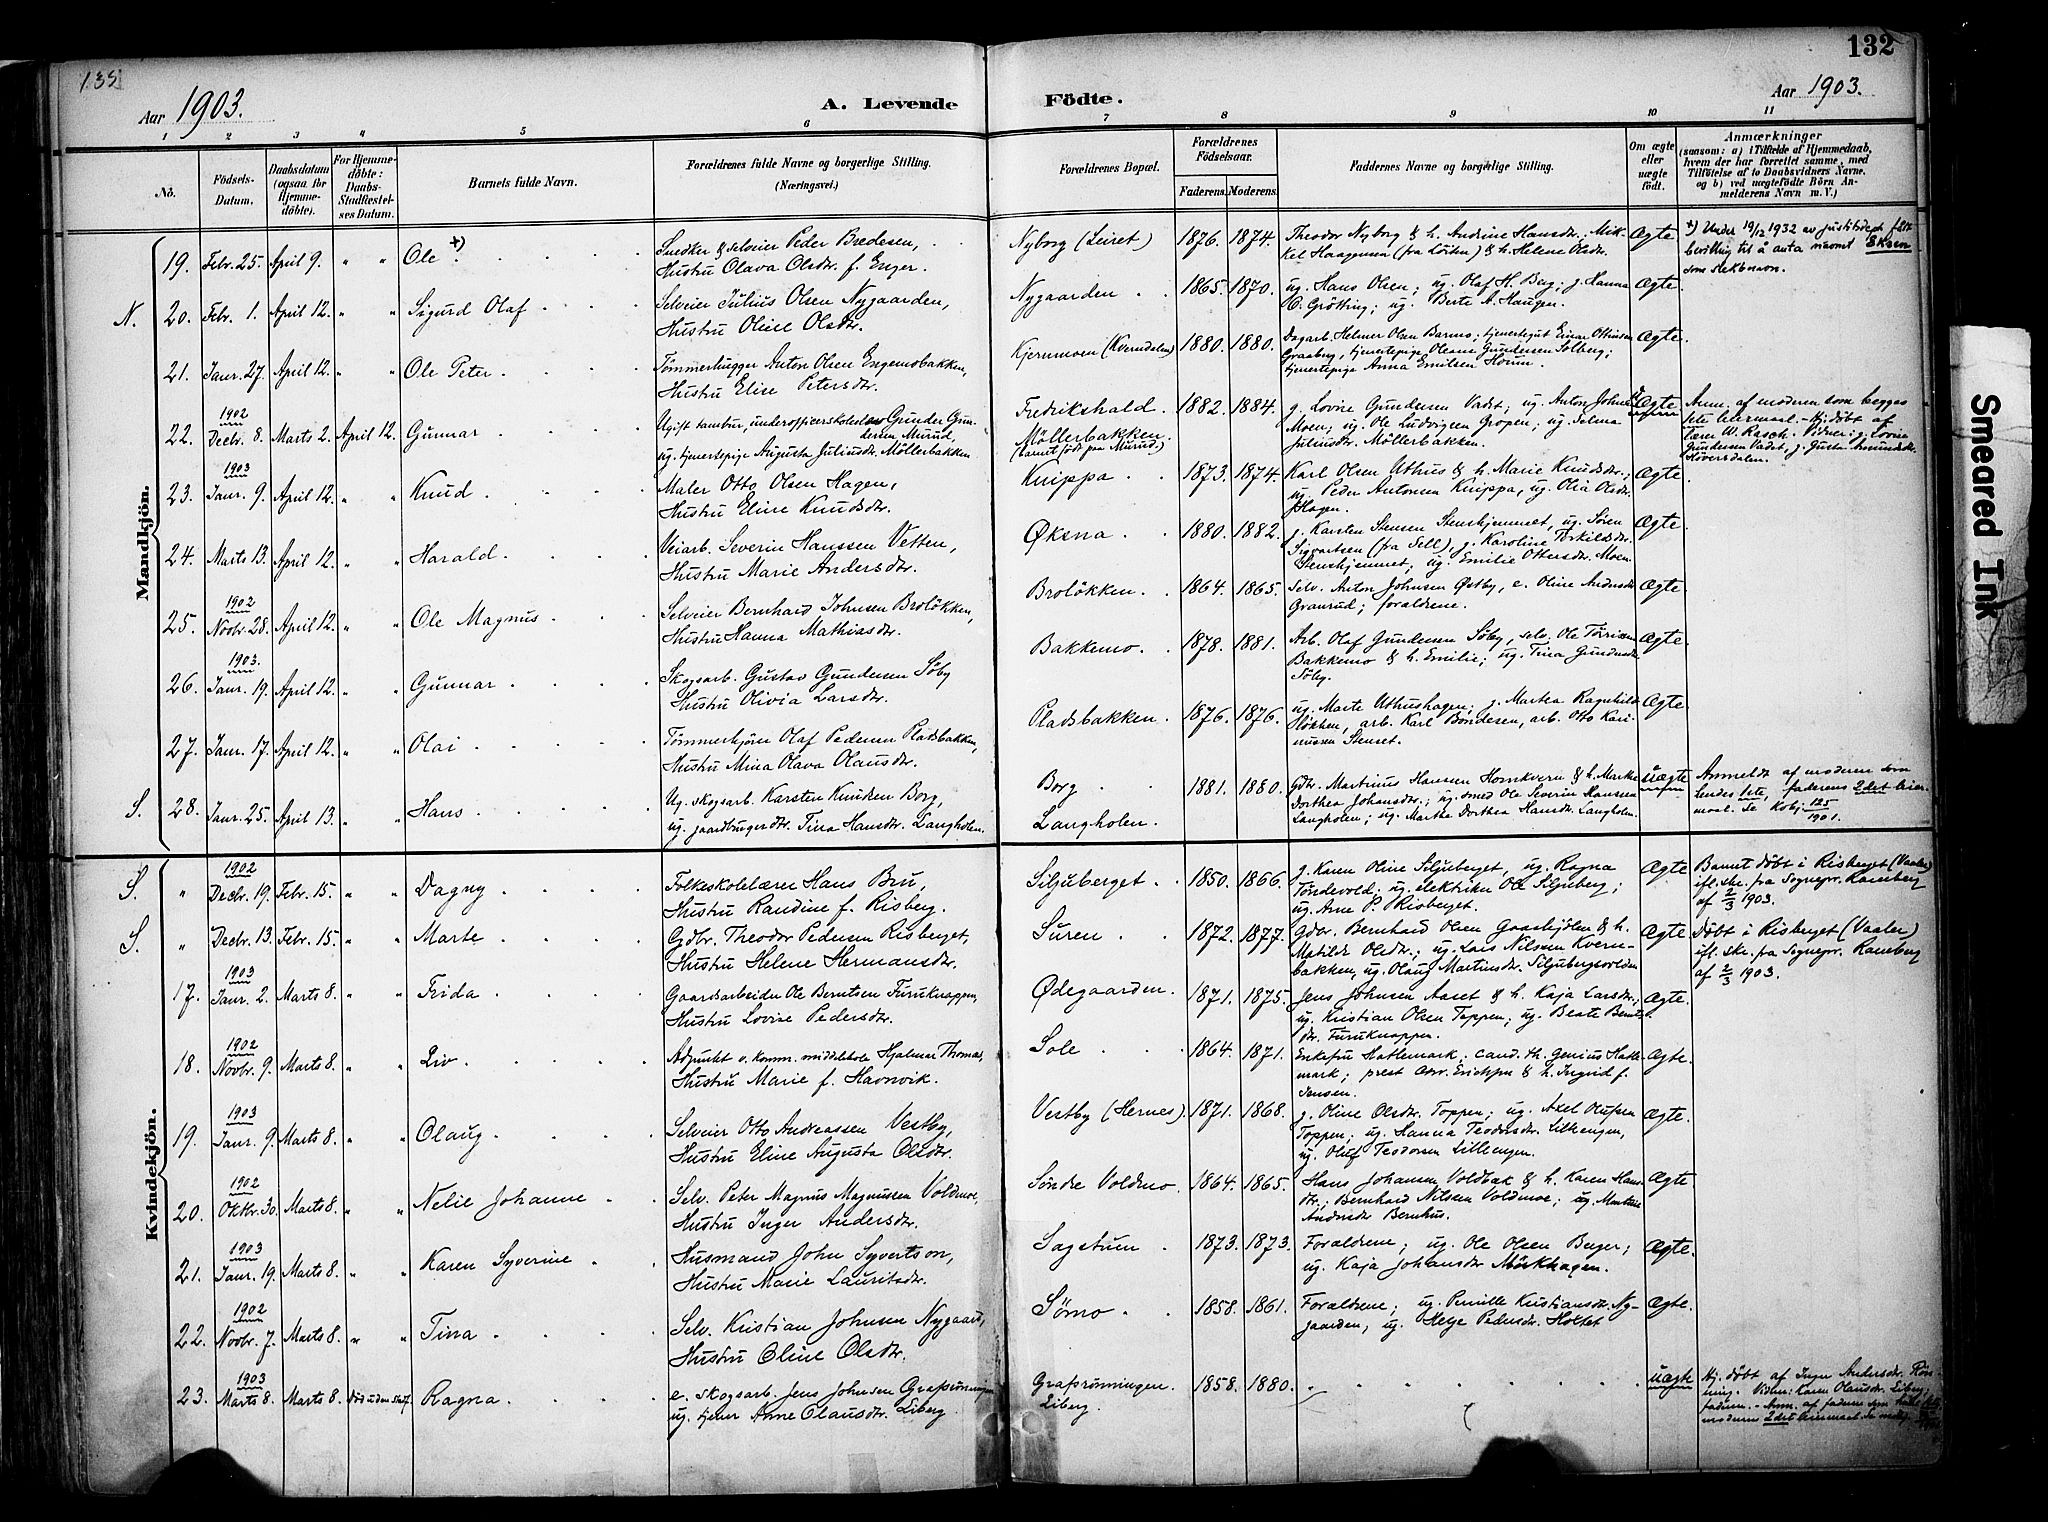 135
132
Aar 1903.
A. Levende
Födte.
Aar 1903.
1 2 3 4 5 6 7 8 9 10 11
No.
Födsels-
Datum.
Daabsdatum
(ogsaa for
Hjemme-
döbte).
For Hjemme-
döbte:
Daabs-
Stadfæstel-
ses Datum.
Barnets fulde Navn.
Forældrenes fulde Navne og borgerlige Stilling.
(Næringsvei.)
Forældrenes Bopæl.
Forældrenes
Födselsaar.
Faderens. Moderens.
Faddernes Navne og borgerlige Stilling.
Om ægte
eller
uægte
födt.
Anmærkninger
(saasom: a) i Tilfælde af Hjemmedaab,
hvem der har forrettet samme, med
Tilföielse af to Daabsvidners Navne,
og b) ved uægtefödte Börn An-
melderens Navn m. V.)
Mandkjön.
19. Febr. 25. April 9. " " Ole x)
Snedker & selveier Peder Bredesen,
Hustru Olava Olsdtr. f. Enger.
Nyborg (Leiret) 1876. 1874.
Theodor Nyborg & h. Andrine Hansdtr. Mik-
kel Haagensen (fra Löten) & h. Helene Olsdtr.
Ægte
x) Under 19/2 1932 av justitsdept. fått
bevilling til å anta navnet Eksen
som slektsnavn.
N. 20. Febr. 1. April 12. " " Sigurd Olaf
Selveier Julius Olsen Nygaarden,
Hustru Oline Olsdtr.
Nygaarden 1865. 1870.
ug. Hans Olsen; ug. Olaf H. Berg; g. Hanna
O. Grötting; ug. Berte A. Haugen.
Ægte.
21. Janr. 27. April 12. " " Ole Peter
Tömmerhugger Anton Olsen Engemobakken,
Hustru Elise Petersdtr.
Kjernmoen (Kverndalen) 1880. 1880.
Dagarb. Helmer Olsen Barmo; tjenertegut Einar Ottinsen
Graaberg, tjenertepige Oleane Gundersen Solberg;
tjenertepige Anna Emilsen Hornn.
Ægte.
1902
22. Decbr. 8. Marts 2. April 12. Gunnar
Ugift tambur, underofficerskoleelev Gunder Gun-
dersen Murud,
ug. tjenertepige Augusta Juliusdtr. Möllerbakken
Fredrikshald. 1882. 1884.
Möllerbakken.
(barnet født paa Murud)
g. Lovise Gundersen Vadet; ug. Anton Johns.
Moen; ug. Ole Ludvigsen Gropen; ug. Selma
Juliusdtr. Möllerbakken.
Uægte
Anm. af moderen som begges
1ste leiermaal. - Hj. døbt af
Lærer W. Rasch. Vidner: g. Lovise
Gundersen Vadet, g. Gusta Amundsdtr.
Höversdalen.
1903
23. Janr. 9. April 12. " " Knud
Maler Otto Olsen Hagen,
Hustru Eline Knudsdtr.
Knippa 1873. 1874.
Karl Olsen Uthus & h. Marie Knudsdtr.;
ug. Peder Antonsen Knippa, ug. Olia Olsdtr.
Hagen.
Ægte
24. Marts 13. April 12. " " Harald
Veiarb. Severin Hanssen Vetten,
Hustru Marie Andersdtr.
Øksna 1880. 1882.
g. Karsten Stensen Stenshjemmet, ug. Sören
Sigvartsen (fra Sell), g. Karoline Torkildsdtr.
Stenshjemmet, ug. Emilie Ottersdtr. Moen
Ægte
1902
25. Novbr. 28. April 12. " " Ole Magnus
Selveier Bernhard Johnsen Brolökken,
Hustru Hanna Mathiasdtr.
Brolökken. 1864. 1865.
Selv. Anton Johnsen Østby, e. Oline Andersdtr.
Granrud; forældrene.
Ægte
1903.
26. Janr. 19. April 12. " " Gunnar
Skogsarb. Gustav Gundersen Söby
Hustru Olivia Larsdtr.
Bakkemo 1878. 1881.
Arb. Olaf Gundersen Söby, selv. Ole Törrisen
Bakkemo & h. Emilie; ug. Tina Gundersdtr.
Söby.
Ægte
27. Janr. 17. April 12. " " Olai
Tömmerkjörer Olaf Pedersen Pladsbakken,
Hustru Mina Olava Olausdtr.
Pladsbakken. 1876. 1876.
ug. Marte Uthushagen; g. Martea Ragnhild
Slökken, arb. Karl Bendesen, arb. Otto Kari-
nussen Stenset.
Ægte
S. 28. Janr. 25. April 13. " " Hans
Ug. skogsarb. Karsten Knudsen Borg,
ug. gaardbrugerdtr. Tina Hansdtr. Langholen.
Borg 1881. 1880.
Langholen.
Gdbr. Martinus Hansen Hornkvern & h. Marthe
Dorthea Johansdtr.; ug. smed Ole Severin Hansen
Langholen; ug. Marthe Dorthea Hansdtr. Langholen.
Uægte
Anmeldt af moderen som
hendes 1ste, faderens 2det leier-
maal. Se Kobj. 125/1901.
Kvindekjön.
1902
S. " Decbr. 19. Febr. 15. " " Dagny
Folkeskolelærer Hans Bru,
Hustru Randine f. Risberg.
Siljuberget 1850. 1866.
g. Karen Oline Siljuberget, ug. Ragna
Töndevold; ug. elektriker Ole Siljuberg;
ug. Arne P. Risberget.
Ægte
Barnet døbt i Risberget (Vaaler)
ifl. skr. fra Sognepr. Ramberg
af 2/3 1903.
S. " Decbr. 13. Febr. 15. " " Marte
Gdbr. Theodor Pedersen Risberget,
Hustru Helene Hermansdtr.
Suren 1872. 1877.
Gdbr. Bernhard Olsen Gaashjölen & h.
Matilde Olsdtr.; ug. Lars Nilssen Kvern-
bakken, ug. Olaug Martinsdtr. Siljubergsvolden
Ægte
Døbt i Risberget (Vaaler)
ifl. skr. fra Sognepr. Ramberg
af 2/3 1903.
1903
17. Janr. 2. Marts 8. " " Frida
Gaardsarbeider Ole Berntsen Furuknappen,
Hustru Lovise Pedersdtr.
Ødegaarden. 1871. 1875.
Jens Johnsen Aaset & h. Kaja Larsdtr.;
ug. Kristian Olsen Toppen; ug. Beate Bernts-
dtr. Furuknappen.
Ægte.
1902
18. Novbr. 9. Marts 8. " " Liv
Adjunkt v. komm. middelskole Hjalmar Thomas,
Hustru Marie f. Havnvik.
Sole 1864. 1871.
Enkefru Hatlemark; cand. th. Genius Hatle-
mark; prest Chr. Erichsen & h. Ingrid f.
Jensen.
Ægte.
1903
19. Janr. 9. Marts 8. " " Olaug
Selveier Otto Andreassen Vestby,
Hustru Eline Augusta Olsdtr.
Vestby (Hernes). 1871. 1868.
g. Oline Olsdtr. Toppen; ug. Axel Olufsen
Toppen; ug. Hanna Teodorsdtr. Lillengen,
ug. Oluf Teodorsen Lillengen.
Ægte.
1902
20. Oktbr. 30. Marts 8. " " Nelie Johanne
Selv. Peter Magnus Magnussen Voldmo,
Hustru Inger Andersdtr.
Söndre Voldmo. 1864. 1865.
Hans Johansen Voldbak & h. Karen Hans-
dtr.; Bernhard Nilsen Voldmoe; ug. Martine
Andersdtr. Bernhus.
Ægte
1903
21. Janr. 19. Marts 8. " " Karen Syverine
Husmand John Syvertson,
Hustru Marie Lauritsdtr.
Sagetuen 1873. 1873.
Forældrene; ug. Ole Olsen Berger;
ug. Kaja Johansdtr. Mörkhagen.
Ægte.
1902
22. Novbr. 7. Marts 8. " " Tina
Selv. Kristian Johnsen Nygaard,
Hustru Oline Olsdtr.
Sörmo 1858. 1861.
Forældrene; ug. Pernille Kristiansdtr. Ny-
gaarden, ug. Helge Pedersdtr. Holtet
Ægte.
1903
23. Marts 8. Marts 8. Död uden stadf. Ragna
e. skogsarb. Jens Johnsen Grafsrönningen
ug. tjener Anne Olausdtr. Liberg
Grafsrönningen. 1858. 1880.
Liberg.
Uægte
Hj. døbt af Inger Andersdtr. Rön-
ning. Vidner: Karen Olausdtr. Liberg,
faderen. - Anm. af faderen som
moderens 2det leiermaal.
Smeared Ink